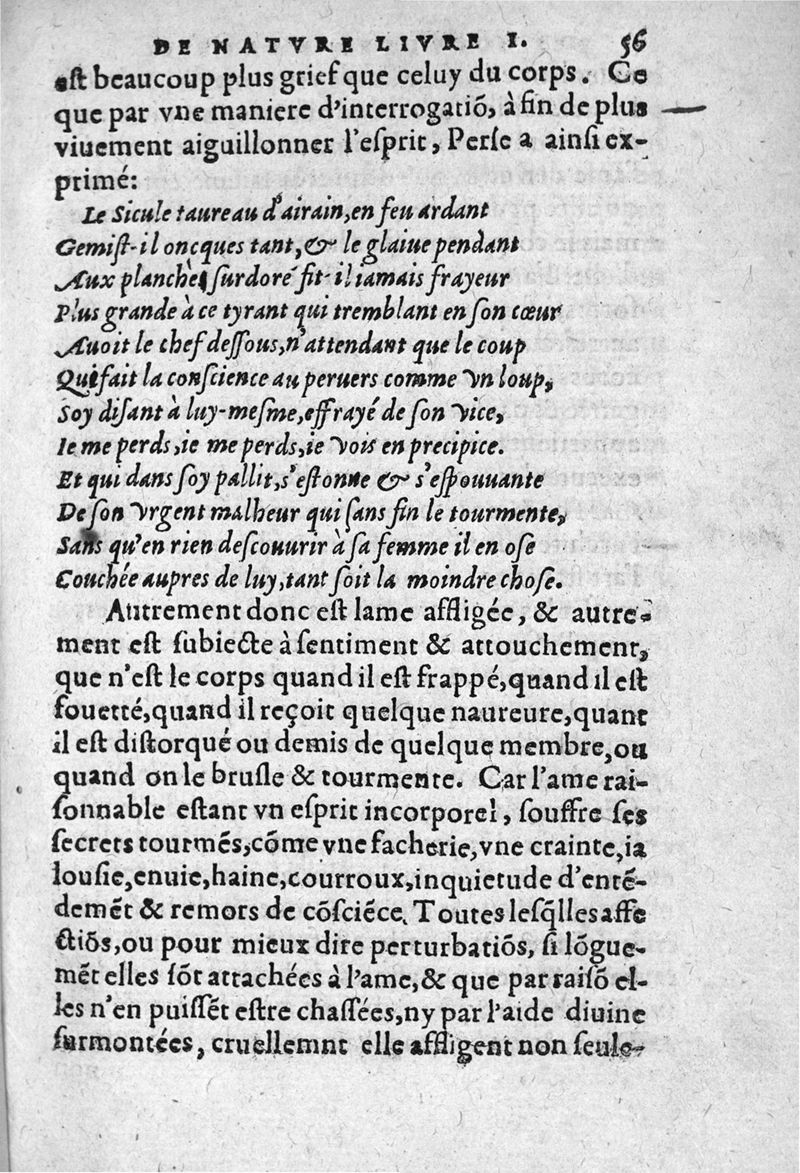 DE NATVRE LIVRE I. 56
eſt beaucoup plus grief que celuy du corps. Ce
que par vne maniere d'interrogatiõ, à fin de plus
viuement aiguillonner l'eſprit, Perſe a ainſi ex-
primé:
Le Sicule taureau d'airain, en feu ardant
Gemiſt-il oncques tant, & le glaiue pendant
Aux planches ſurdoré fit-il iamais frayeur
Plus grande à ce tyrant qui tremblant en ſon cœur
Auoit le chef deſſous, n'attendant que le coup
Qui fait la conſcience au peruers comme vn loup,
Soy diſant à luy-meſme, effrayé de ſon vice,
Ie me perds, ie me perds, ie vois en precipice.
Et qui dans ſoy pallit, s'eſtonne & s'eſpouuante
De ſon vrgent malheur qui ſans fin le tourmente,
Sans qu'en rien deſcouurir à ſa femme il en oſe
Couchée aupres de luy, tant ſoit la moindre choſe.
Autrement donc eſt lame affligée, & autre-
ment eſt ſubiecte à ſentiment & attouchement,
que n'eſt le corps quand il eſt frappé, quand il eſt
fouetté, quand il reçoit quelque naureure, quant
il eſt diſtorqué ou demis de quelque membre, ou
quand on le bruſle & tourmente. Car l'ame rai-
ſonnable eſtant vn eſprit incorporel, ſouffre ſes
ſecrets tourmẽs, cõme vne facherie, vne crainte, ia
louſie, enuie, haine, courroux, inquietude d'entẽ-
demẽt & remors de cõſciẽce. Toutes leſq̃lles affe
ctiõs, ou pour mieux dire perturbatiõs, ſi lõgue-
mẽt elles ſõt attachées à l'ame, & que par raiſõ el-
les n'en puiſſẽt eſtre chaſſées, ny par l'aide diuine
ſurmontées, cruellemnt elle affligent non ſeule-